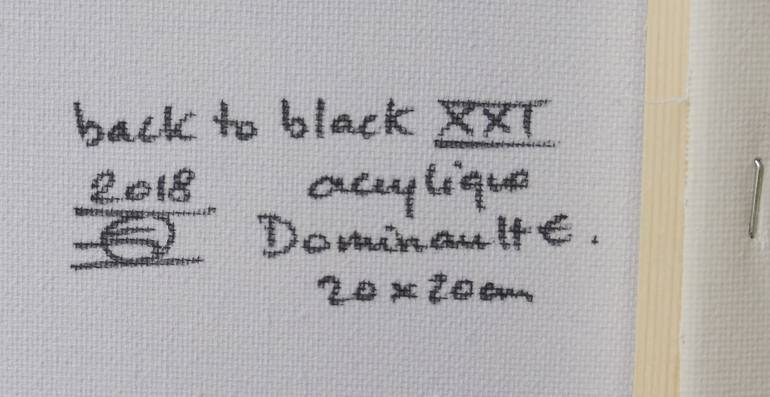 back to black XXI
2018 acrylique
Dominault E.
20 x 20 cm